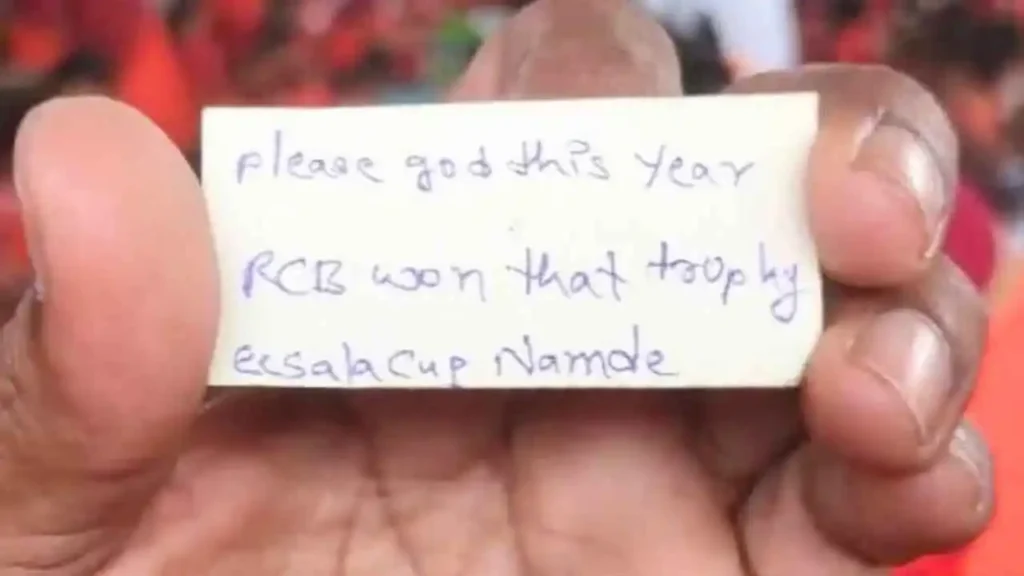 please god this year
RCB won that trophy
EesalaCup Namde